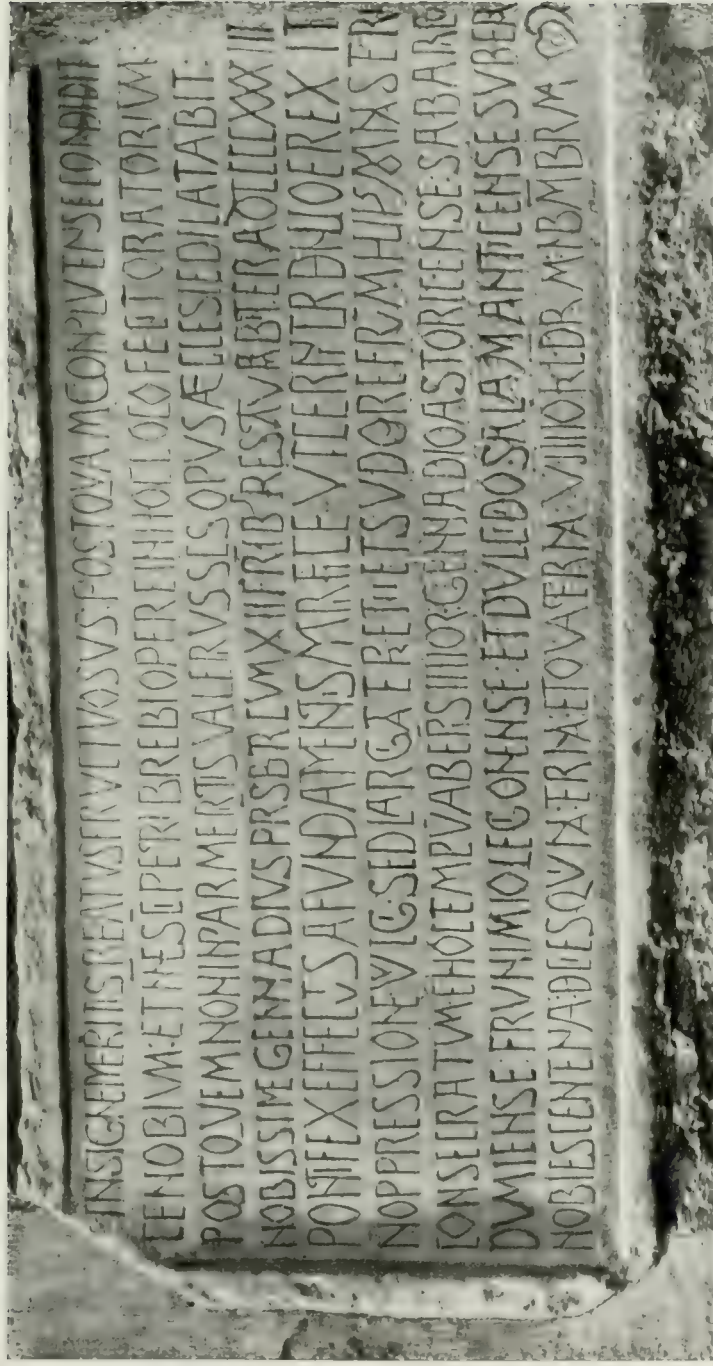 INSIGNE MERITIS BEATVS FRVCTVOSVS POSTQVAM CONPLVTENSE CONDIDIT
CENOBIVM ET NME SCI PETRI BREBI OPERE IN HOC LOCO FECIT ORATORIVM
POST QVEM NON INPAR MERTIS VALERIVS SCS OPVS ÆCLESIE DILATABIT
NOBISSIME GENNADIVS PRSBTR CVM XII FRIB RESTAVRABIT ERA DCCCCXXXIII
PONTIFEX EFFECTVS A FVNDAMENTIS MIRIFICE VT CERNITR DENVO EREXIT
N OPPRESSIONE VLG SED LARGITATE PRETII ET SVDORE FRVM HVIVS MNSTERI
CONSECRATVM E HOC TEMPLVM AB EPS IIIIOR GENNADIO ASTORICENSE SABARICO
DVMIENSE FRVNIMIO LEGIONENSE ET DVLCIDIO SALAMANTICENSE SVB ERA
NOBIES CENTENA DECIES QVINA TERNA ET QVATERNA VIIIIO KLDRM NBMBRM